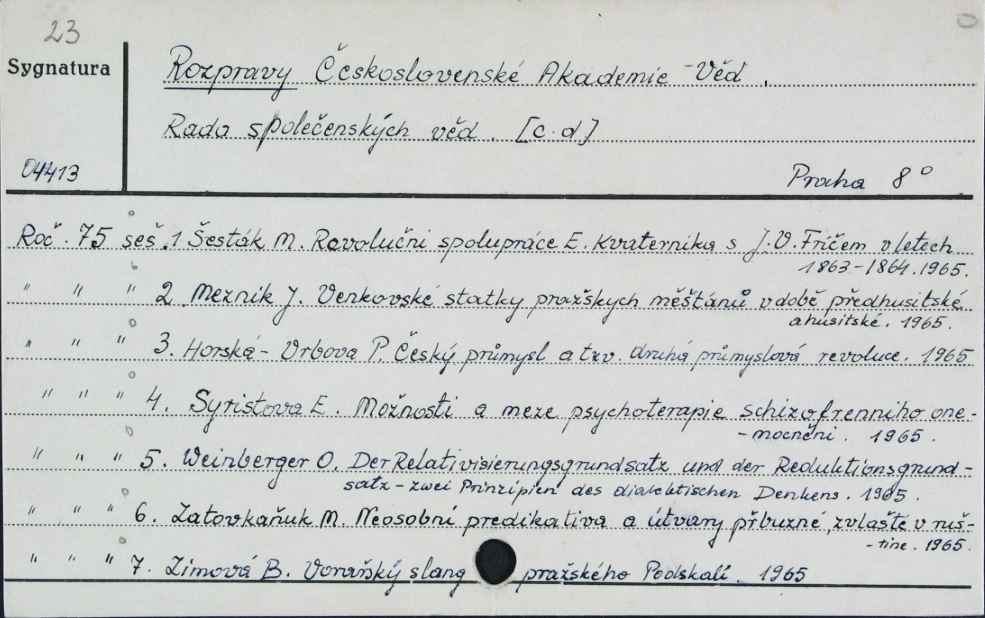 23
Sygnatura
Rozpravy Československé Akademie Věd.
Rada společenských věd. [c.d]
04413
Praha 8°
Roč. 75 seš. 1 Šesták M. Revoluční spolupráce E. Kvaternika s J.V. Fričem v letech
1863-1864. 1965.
" " " 2. Mezník J. Venkovské statky pražskych měštánů v době předhusitské
a husitské. 1965.
" " " 3. Horská-Vrbova P. Český průmysl a tzv. druhá průmyslová revoluce. 1965
" " " 4. Syristova E. Možnosti a meze psychoterapie schizofrenniho one-
-mocnění. 1965.
" " " 5. Weinberger O. Der Relativisierungsgrundsatz und der Reduktionsgrund-
satz - zwei Prinzipien des dialektischen Denkens. 1965.
" " " 6. Zatovkaňuk M. Neosobní predikativa a útvary přbuzné, zvlaště v ruš-
-tine. 1965.
" " " 7. Zimová B. Voraňský slang pražského Podskalí. 1965